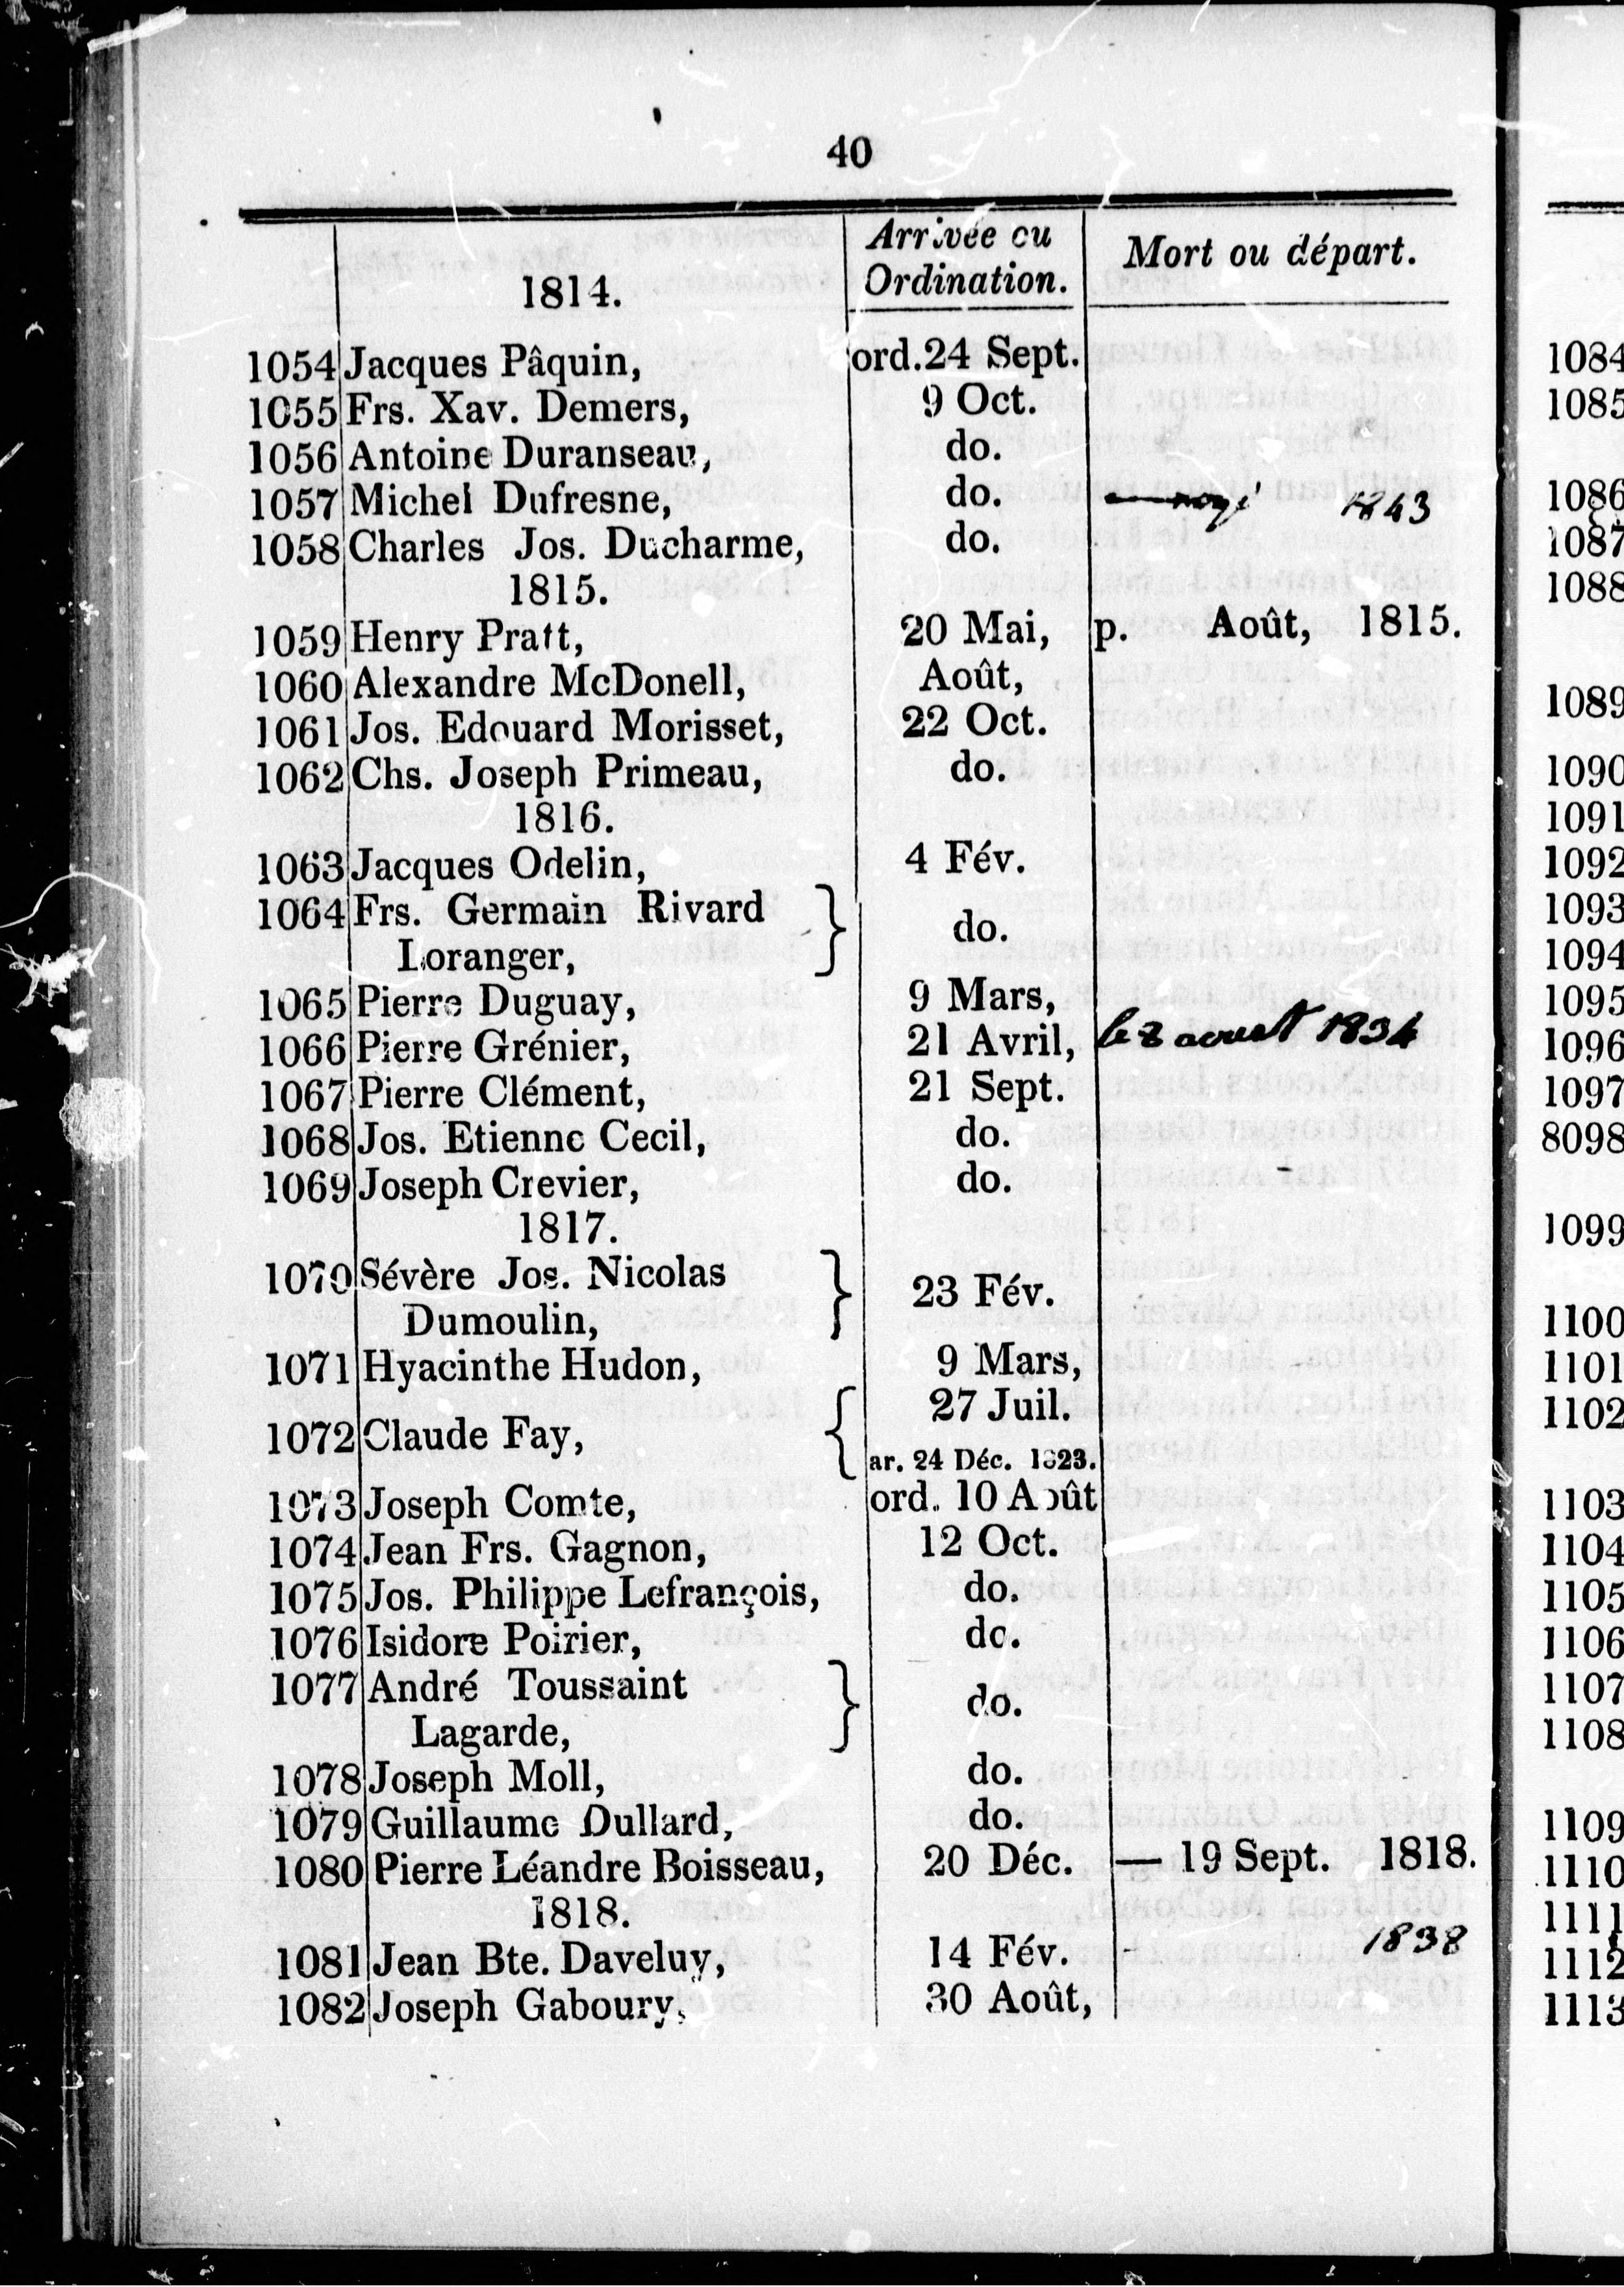 40
1814.
Arrivée ou
Ordination.
Mort ou départ.
1054 Jacques Pâquin, ord. 24 Sept.
1055 Frs. Xav. Demers, 9 Oct.
1056 Antoine Duranseau, do.
1057 Michel Dufresne, do. — noyé 1843
1058 Charles Jos. Ducharme, do.
1815.
1059 Henry Pratt, 20 Mai, p. Août, 1815.
1060 Alexandre McDonell, Août,
1061 Jos. Edouard Morisset, 22 Oct.
1062 Chs. Joseph Primeau, do.
1816.
1063 Jacques Odelin, 4 Fév.
1064 Frs. Germain Rivard
Loranger, } do.
1065 Pierre Duguay, 9 Mars,
1066 Pierre Grénier, 21 Avril, le 8 aoust 1834
1067 Pierre Clément, 21 Sept.
1068 Jos. Etienne Cecil, do.
1069 Joseph Crevier, do.
1817.
1070 Sévère Jos. Nicolas
Dumoulin, } 23 Fév.
1071 Hyacinthe Hudon, 9 Mars,
1072 Claude Fay, { 27 Juil.
ar. 24 Déc. 1823.
1073 Joseph Comte, ord. 10 Août
1074 Jean Frs. Gagnon, 12 Oct.
1075 Jos. Philippe Lefrançois, do.
1076 Isidore Poirier, do.
1077 André Toussaint
Lagarde, } do.
1078 Joseph Moll, do.
1079 Guillaume Dullard, do.
1080 Pierre Léandre Boisseau, 20 Déc. — 19 Sept. 1818.
1818.
1081 Jean Bte. Daveluy, 14 Fév. - 1838
1082 Joseph Gaboury, 30 Août,
1084
1085
1086
1087
1088
1089
1090
1091
1092
1093
1094
1095
1096
1097
8098
1099
1100
1101
1102
1103
1104
1105
1106
1107
1108
1109
1110
1111
1112
1113